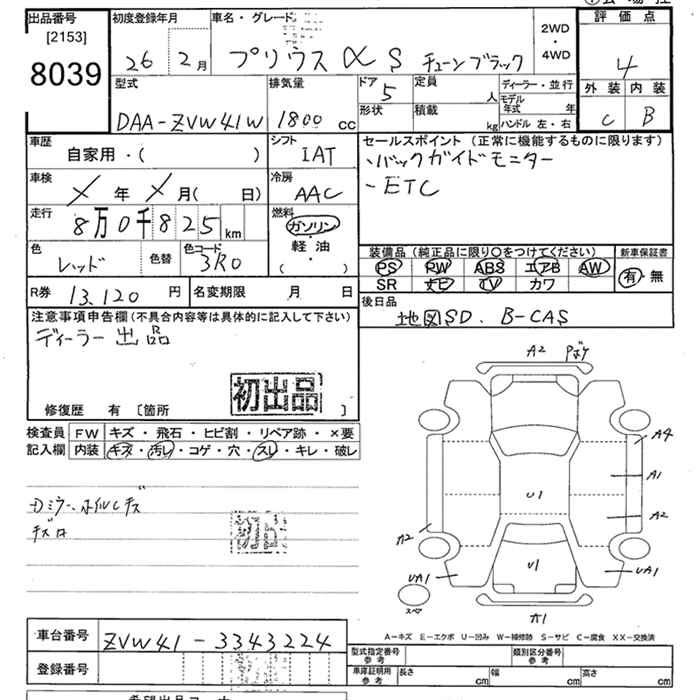 出品番号 初度登録年月 車名・グレード 評価点
[2153]
8039
26 2月 プリウスα S チューンブラック 2WD・4WD 4
型式 排気量 ドア 5 定員 人 ディーラー・並行 外装 内装
DAA-ZVW41W 1800 cc 形状 積載 kg モデル年式 年 ハンドル 左・右 C B
車歴 シフト セールスポイント (正常に機能するものに限ります)
自家用・( ) IAT ・バックガイドモニター
車検 冷房 -ETC
× 年 × 月( 日) AAC
走行 燃料
8万0千825km ガソリン・軽油・( )
色 色替 色コード 装備品 (純正品に限り○をつけてください) 新車保証書
レッド 3R0 PS PW ABS エアB AW 有・無
SR ナビ TV カワ
R券 13,120 円 名変期限 月 日 後日品
地図SD. B-CAS
注意事項申告欄 (不具合内容等は具体的に記入して下さい)
ディーラー出品
初出品
修復歴 有 [箇所 ]
検査員 FW キズ・飛石・ヒビ割・リペア跡・×要
記入欄 内装 キズ・汚レ・コゲ・穴・スレ・キレ・破レ
A2
A4
A1
U1
A2
A2
U1
UA1 UA1
スペア
A1
A-キズ E-エクボ U-凹み W-補修跡 S-サビ C-腐食 XX-交換済
車台番号 ZVW41-3343224
登録番号
型式指定番号 参考 類別区分番号 参考
車庫証明用 参考 長さ cm 幅 cm 高さ cm